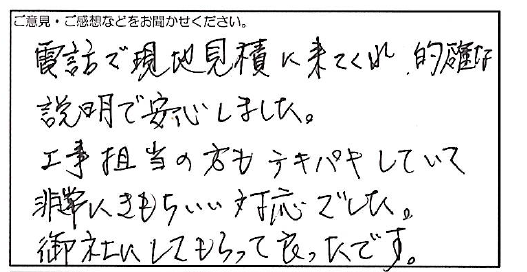 ご意見・ご感想などをお聞かせください。
電話で現地見積に来てくれ、的確な
説明で安心しました。
工事担当の方もテキパキしていて
非常にきもちいい対応でした。
御社にしてもらって良ったです。